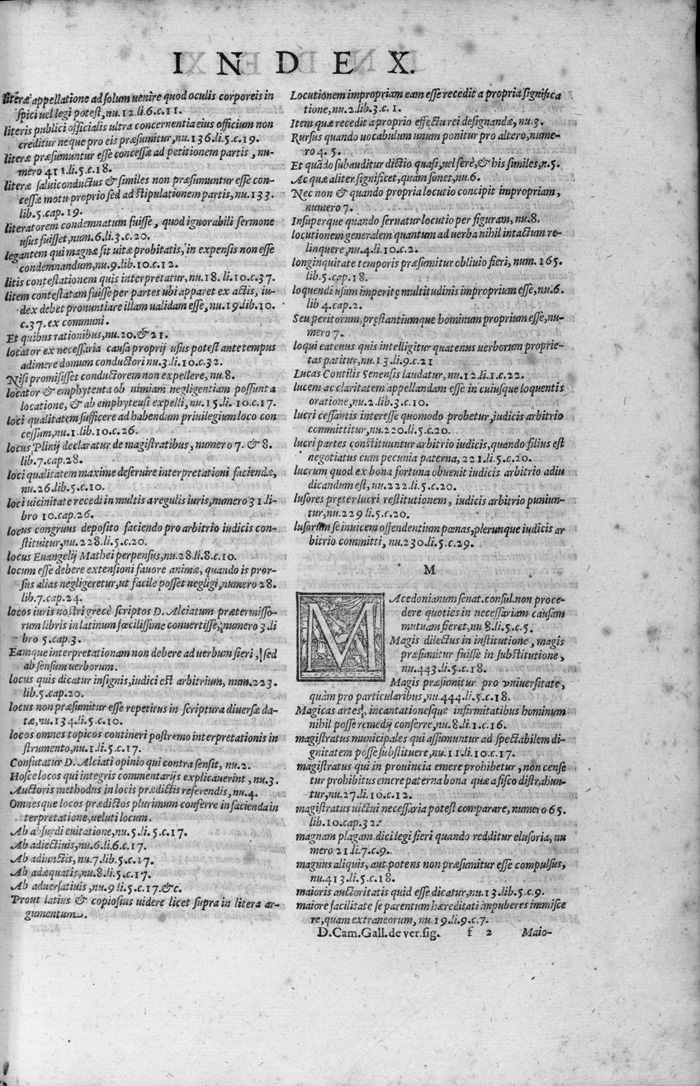 INDEX.
literæ appellatione ad solum uenire quod oculis corporeis in
spici uel legi potest, nu.12.li.6.c.11.
literis publici officialis ultra concernentia eius officium non
creditur neque pro eis præsumitur, nu.136.li.5.c.19.
literæ præsumuntur esse concessæ ad petitionem partis, nu-
mero 411.li.5.c.18.
literæ saluiconductus & similes non præsumuntur esse con-
cessæ motu proprio sed ad stipulationem partis, nu.133.
lib.5.cap.19.
literatorem condemnatum fuisse, quod ignorabili sermone
usus fuisset, num.6.li.3.c.20.
legantem qui magnæ sit uitæ probitatis, in expensis non esse
condemnandum, nu.9.lib.10.c.12.
litis contestationem quis interpretatur, nu.18.li.10.c.37.
litem contestatam fuisse per partes ubi apparet ex actis, iu-
dex debet pronuntiare illam ualidam esse, nu.19.lib.10.
c.37.ex communi.
Et quibus rationibus, nu.20.& 21.
locator ex necessaria causa proprij usus potest ante tempus
adimere domum conductori nu.3.li.10.c.32.
Nisi promisisset conductorem non expellere, nu.8.
locator & emphyteuta ob nimiam negligentiam possunt a
locatione, & ab emphyteusi expelli, nu.15.li.10.c.17.
loci qualitatem sufficere ad habendum priuilegium loco con
cessum, nu.1.lib.10.c.26.
locus Plinij declaratur de magistratibus, numero 7. & 8.
lib.7.cap.28.
loci qualitatem maxime deseruire interpretationi faciendæ,
nu.26.lib.5.c.10.
loci uicinitate recedi in multis a regulis iuris, numero 31.li-
bro 10.cap.26.
locus congruus deposito faciendo pro arbitrio iudicis con-
stituitur, nu.228.li.5.c.20.
locus Euangelij Mathei perpensus, nu.28.li.8.c.10.
locum esse debere extensioni fauore animæ, quando is pror-
sus alias negligeretur, ut facile posset negligi, numero 28.
lib.7.cap.24.
locos iuris nostri grecè scriptos D. Alciatum prætermisso-
rum libris in latinum fœcilissime conuertisse, numero 3.li
bro 5.cap.3.
Eamque interpretationam non debere ad uerbum fieri, sed
ab sensum uerborum.
locus quis dicatur insignis, iudici est arbitrium, num.223.
lib.5.cap.20.
locus non præsumitur esse repetitus in scriptura diuersæ da-
tæ, nu.134.li.5.c.10.
locos omnes topicos contineri postremo interpretationis in
strumento, nu.1.li.5.c.17.
Confutatur D. Alciati opinio qui contra sensit, nu.2.
Hosce locos qui integris commentarijs explicauerint, nu.3.
Auctoris methodus in locis prædictis referendis, nu.4.
Omnesque locos prædictos plurimum conferre in facienda in
terpretatione, ueluti locum.
Ab absurdi euitatione, nu.5.li.5.c.17.
Ab adiectiuis, nu.6.li.6.c.17.
Ab adiunctis, nu.7.lib.5.c.17.
Ab adæquatis, nu.8.li.5.c.17.
Ab aduersatiuis, nu.9.li.5.c.17.&c.
Prout latius & copiosius uidere licet supra in litera ar-
gumentum.
Locutionem impropriam eam esse recedit a propria significa
tione, nu.2.lib.3.c.1.
Item quæ recedit a proprio effectu rei designandæ, nu.3.
Rursus quando uocabulum unum ponitur pro altero, nume-
ro 4.5.
Et quādo subauditur dictio quasi, uel ferè, & his similes, n.5.
Ac quæ aliter significet, quam sonet, nu.6.
Nec non & quando propria locutio concipit impropriam,
numero 7.
Insuperque quando seruatur locutio per figuram, nu.8.
locutionem generalem quantum ad uerba nihil intactum re-
linquere, nu.4.li.10.c.2.
longinquitate temporis præsumitur obliuio fieri, num.165.
lib.5.cap.18.
loquendi usum imperitę multitudinis improprium esse, nu.6.
lib.4.cap.2.
Seu peritorum, pręstantiumque hominum proprium esse, nu-
mero 7.
loqui eatenus quis intelligitur quatenus uerborum proprie-
tas patitur, nu.13.li.9.c.21
Lucas Contilis Senensis laudatur, nu.12.li.1.c.22.
lucem ac claritatem appellandam esse in cuiusque loquentis
oratione, nu.2.lib.3.c.10.
lucri cessantis interesse quomodo probetur, iudicis arbitrio
committitur, nu.220.li.5.c.20.
lucri partes constituuntur arbitrio iudicis, quando filius est
negotiatus cum pecunia paterna, 221.li.5.c.20.
lucrum quod ex bona fortuna obuenit iudicis arbitrio adiu
dicandum est, nu.222.li.5.c.20.
lusores preter lucri restitutionem, iudicis arbitrio puniun-
tur, nu.229.li.5.c.20.
lusorum se inuicem offendentium pœnas, plerunque iudicis ar
bitrio committi, nu.230.li.5.c.29.
M
MAcedonianum senat.consul.non proce-
dere quoties in necessariam causam
mutuam fieret, nu.8.li.5.c.5.
Magis dilectus in institutione, magis
præsumitur fuisse in substitutione,
nu.443.li.5.c.18.
Magis præsumitur pro vniuersitate,
quàm pro particularibus, nu.444.li.5.c.18.
Magicas artes, incantationesque infirmitatibus hominum
nihil posse remedij conferre, nu.8.li.1.c.16.
magistratus municipales qui assumuntur ad spectabilem di-
gnitatem posse substituere, nu.11.li.10.c.17.
magistratus qui in prouincia emere prohibetur, non cense
tur prohibitus emere paterna bona quæ a fisco distrahun-
tur, nu.27.li.10.c.12.
magistratus uictui necessaria potest comparare, numero 65.
lib.10.cap.32.
magnam plagam dici legi fieri quando redditur elusoria, nu
mero 21.li.7.c.9.
magnus aliquis, aut potens non præsumitur esse compulsus,
nu.413.li.5.c.18.
maioris auctoritatis quid esse dicatur, nu.13.lib.5.c.9.
maiore facilitate se parentum hæreditati impuberes immisce
re, quam extraneorum, nu.19.li.9.c.7.
D.Cam.Gall.de ver.sig. f 2 Maio-